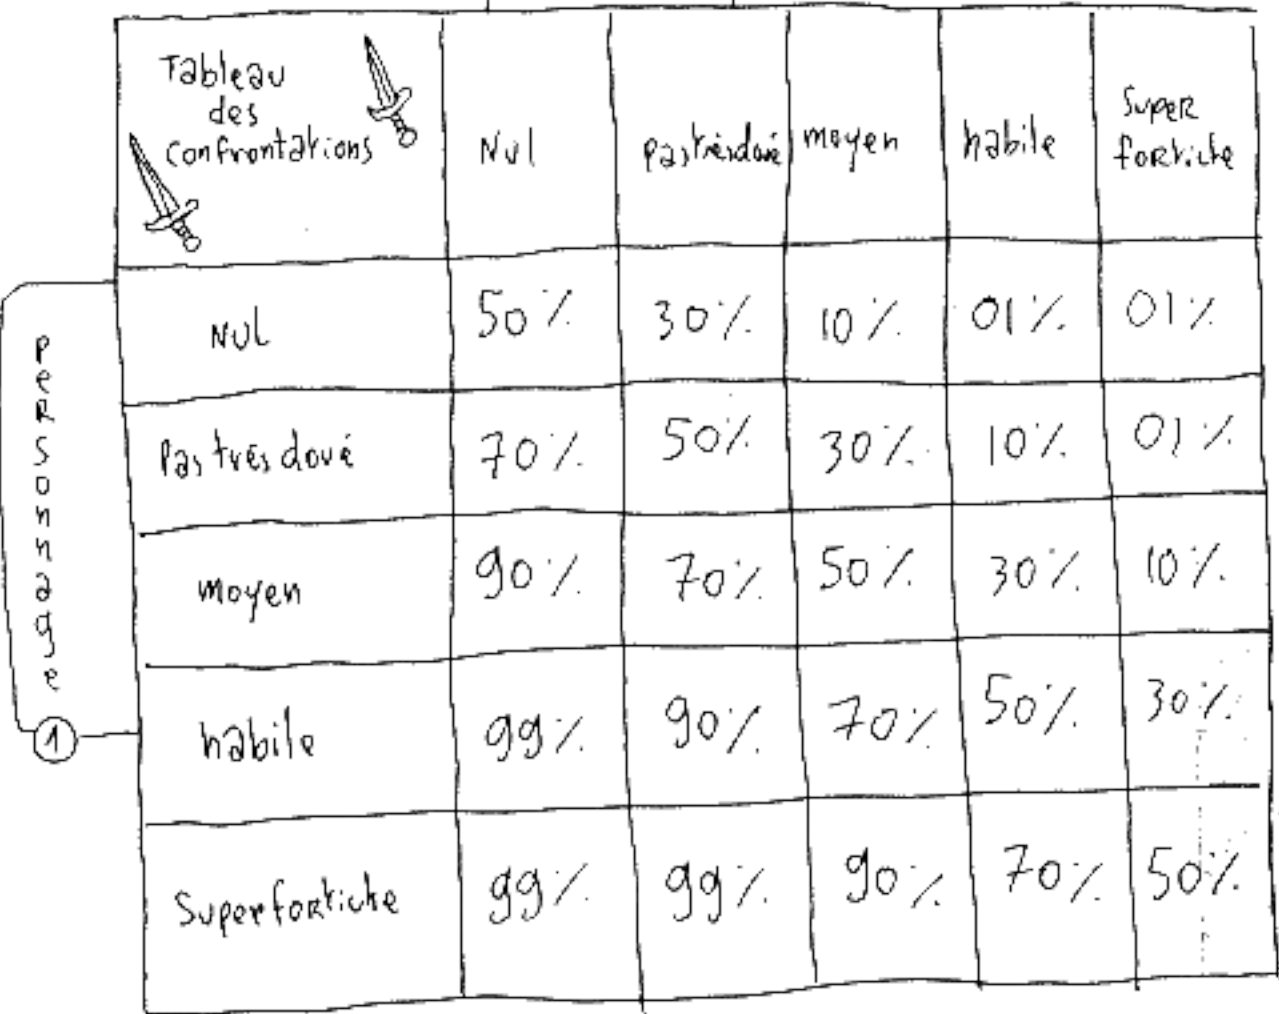 Tableau
des
confrontations
Nul
pas très doué
moyen
habile
Super
fortiche
Nul
50% 30% 10% 01% 01%
Pas très doué
70% 50% 30% 10% 01%
moyen
90% 70% 50% 30% 10%
habile
99% 90% 70% 50% 30%
Super fortiche
99% 99% 90% 70% 50%
personnage
1